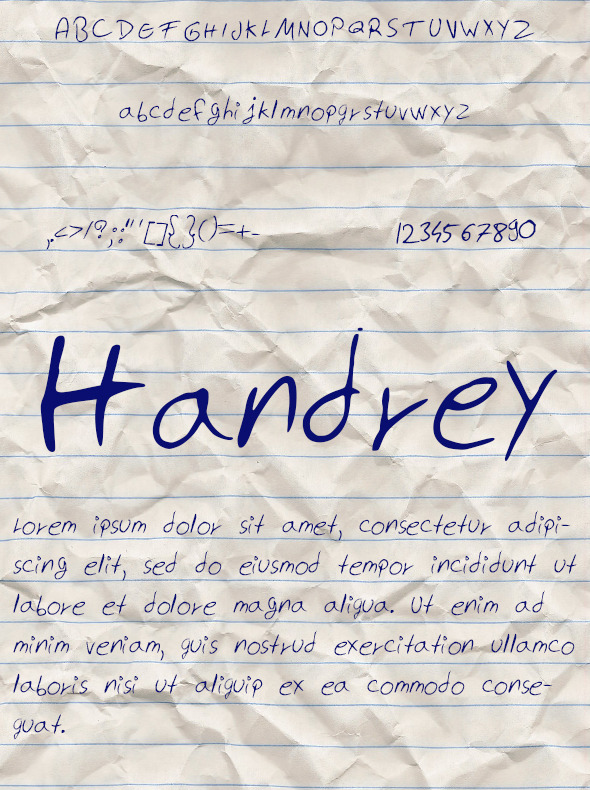 ABCDEFGHIJKLMNOPQRSTUVWXYZ
abcdefghijklmnopqrstuvwxyz
,.<>/?;:"'[]{}()=+-
1234567890
Handrey
Lorem ipsum dolor sit amet, consectetur adipi-
scing elit, sed do eiusmod tempor incididunt ut
labore et dolore magna aliqua. Ut enim ad
minim veniam, quis nostrud exercitation ullamco
laboris nisi ut aliquip ex ea commodo conse-
quat.